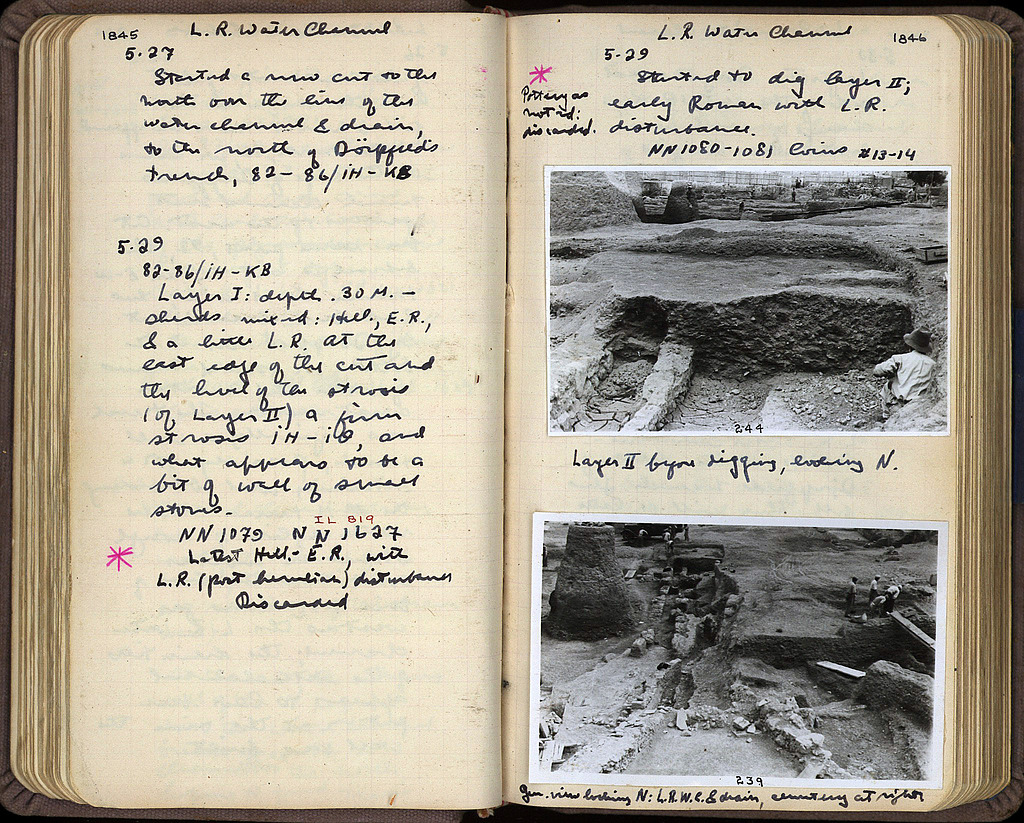 1845
L. R. Water Channel
5.27
Started a new cut to the
north over the line of the
water channel & drain,
to the north of Dörpfeld's
trench, 82-86/IH-KB
5.29
82-86/IH-KB
Layer I: depth .30 M. -
sherds mixed: Hell., E.R.,
& a little L.R. At the
east edge of the cut and
the level of the strosis
(of Layer II) a firm
strosis IH-, and
what appears to be a
bit of wall of small
stones.
IL 819
NN 1079 NN 1627
Latest Hell.-E.R., with
L.R. (post herulian) disturbance
Discarded
L. R. Water Channel
1846
5.29
Started to dig layer II;
early Roman with L.R.
disturbance.
Pottery as
not'd:
discarded.
NN1080-1081 Coins #13-14
244
Layer II before digging, looking N.
239
Gen. view looking N: L.R.W.C. & drain, cemetery at right